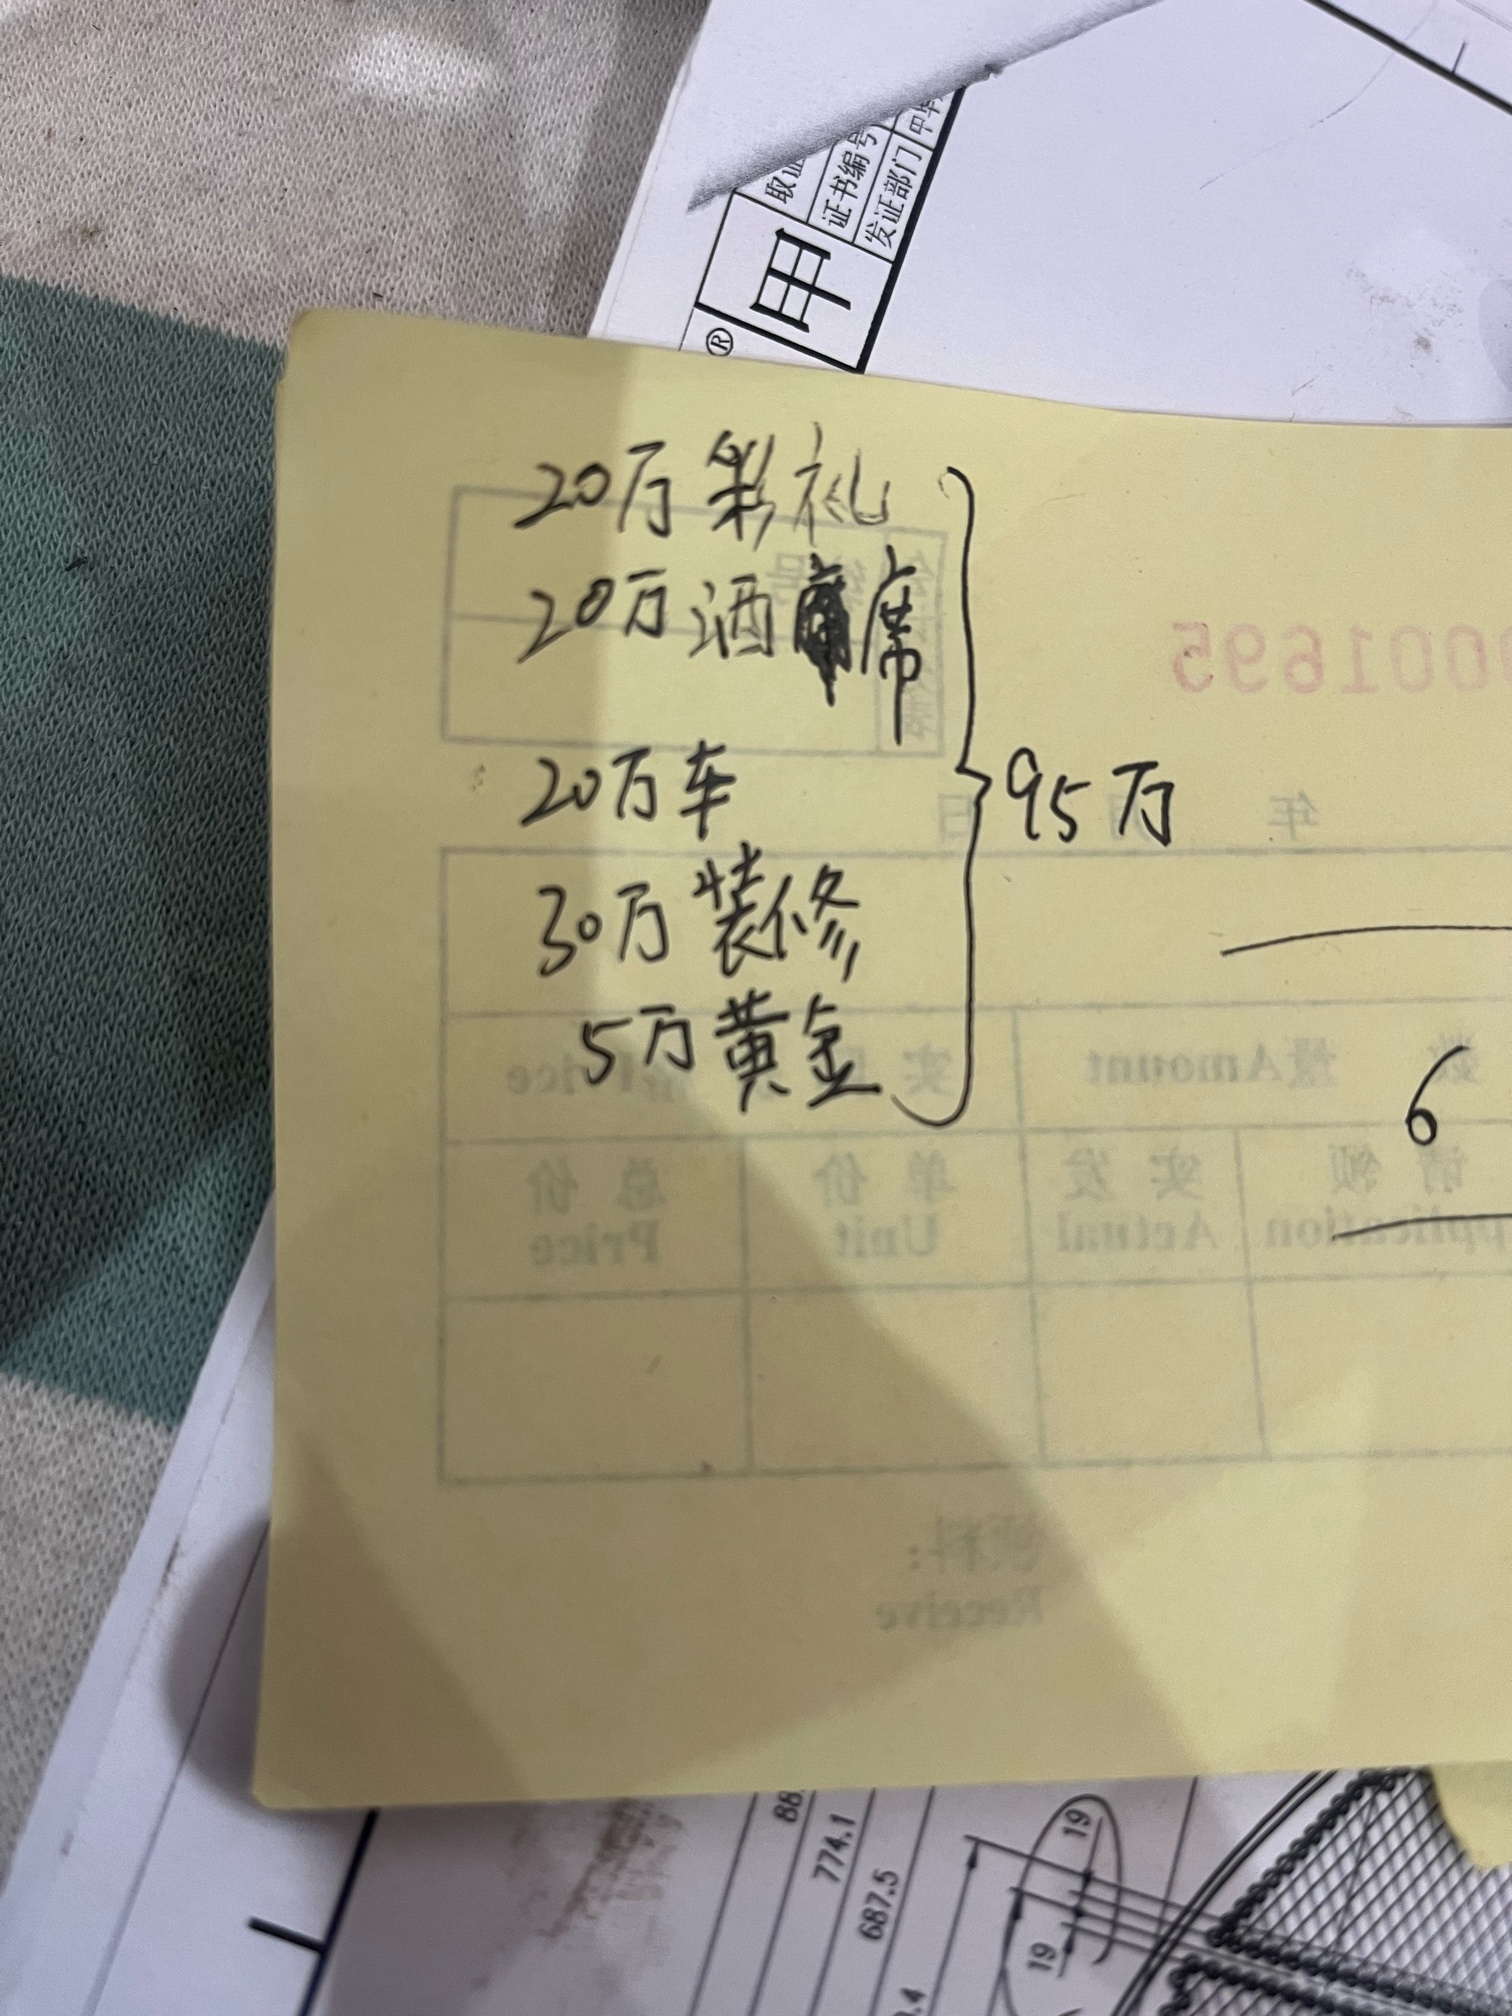 取证
证书编号
发证部门 中华
甲
®
20万彩礼
20万酒席
20万车
30万装修
5万黄金
95万
6
0001695
年 日
数 量Amount
实
Price
请 领
Application
实 发
Actual
单 价
Unit
总 价
Price
领料：
Receive
88
774.1
687.5
19
19
.4